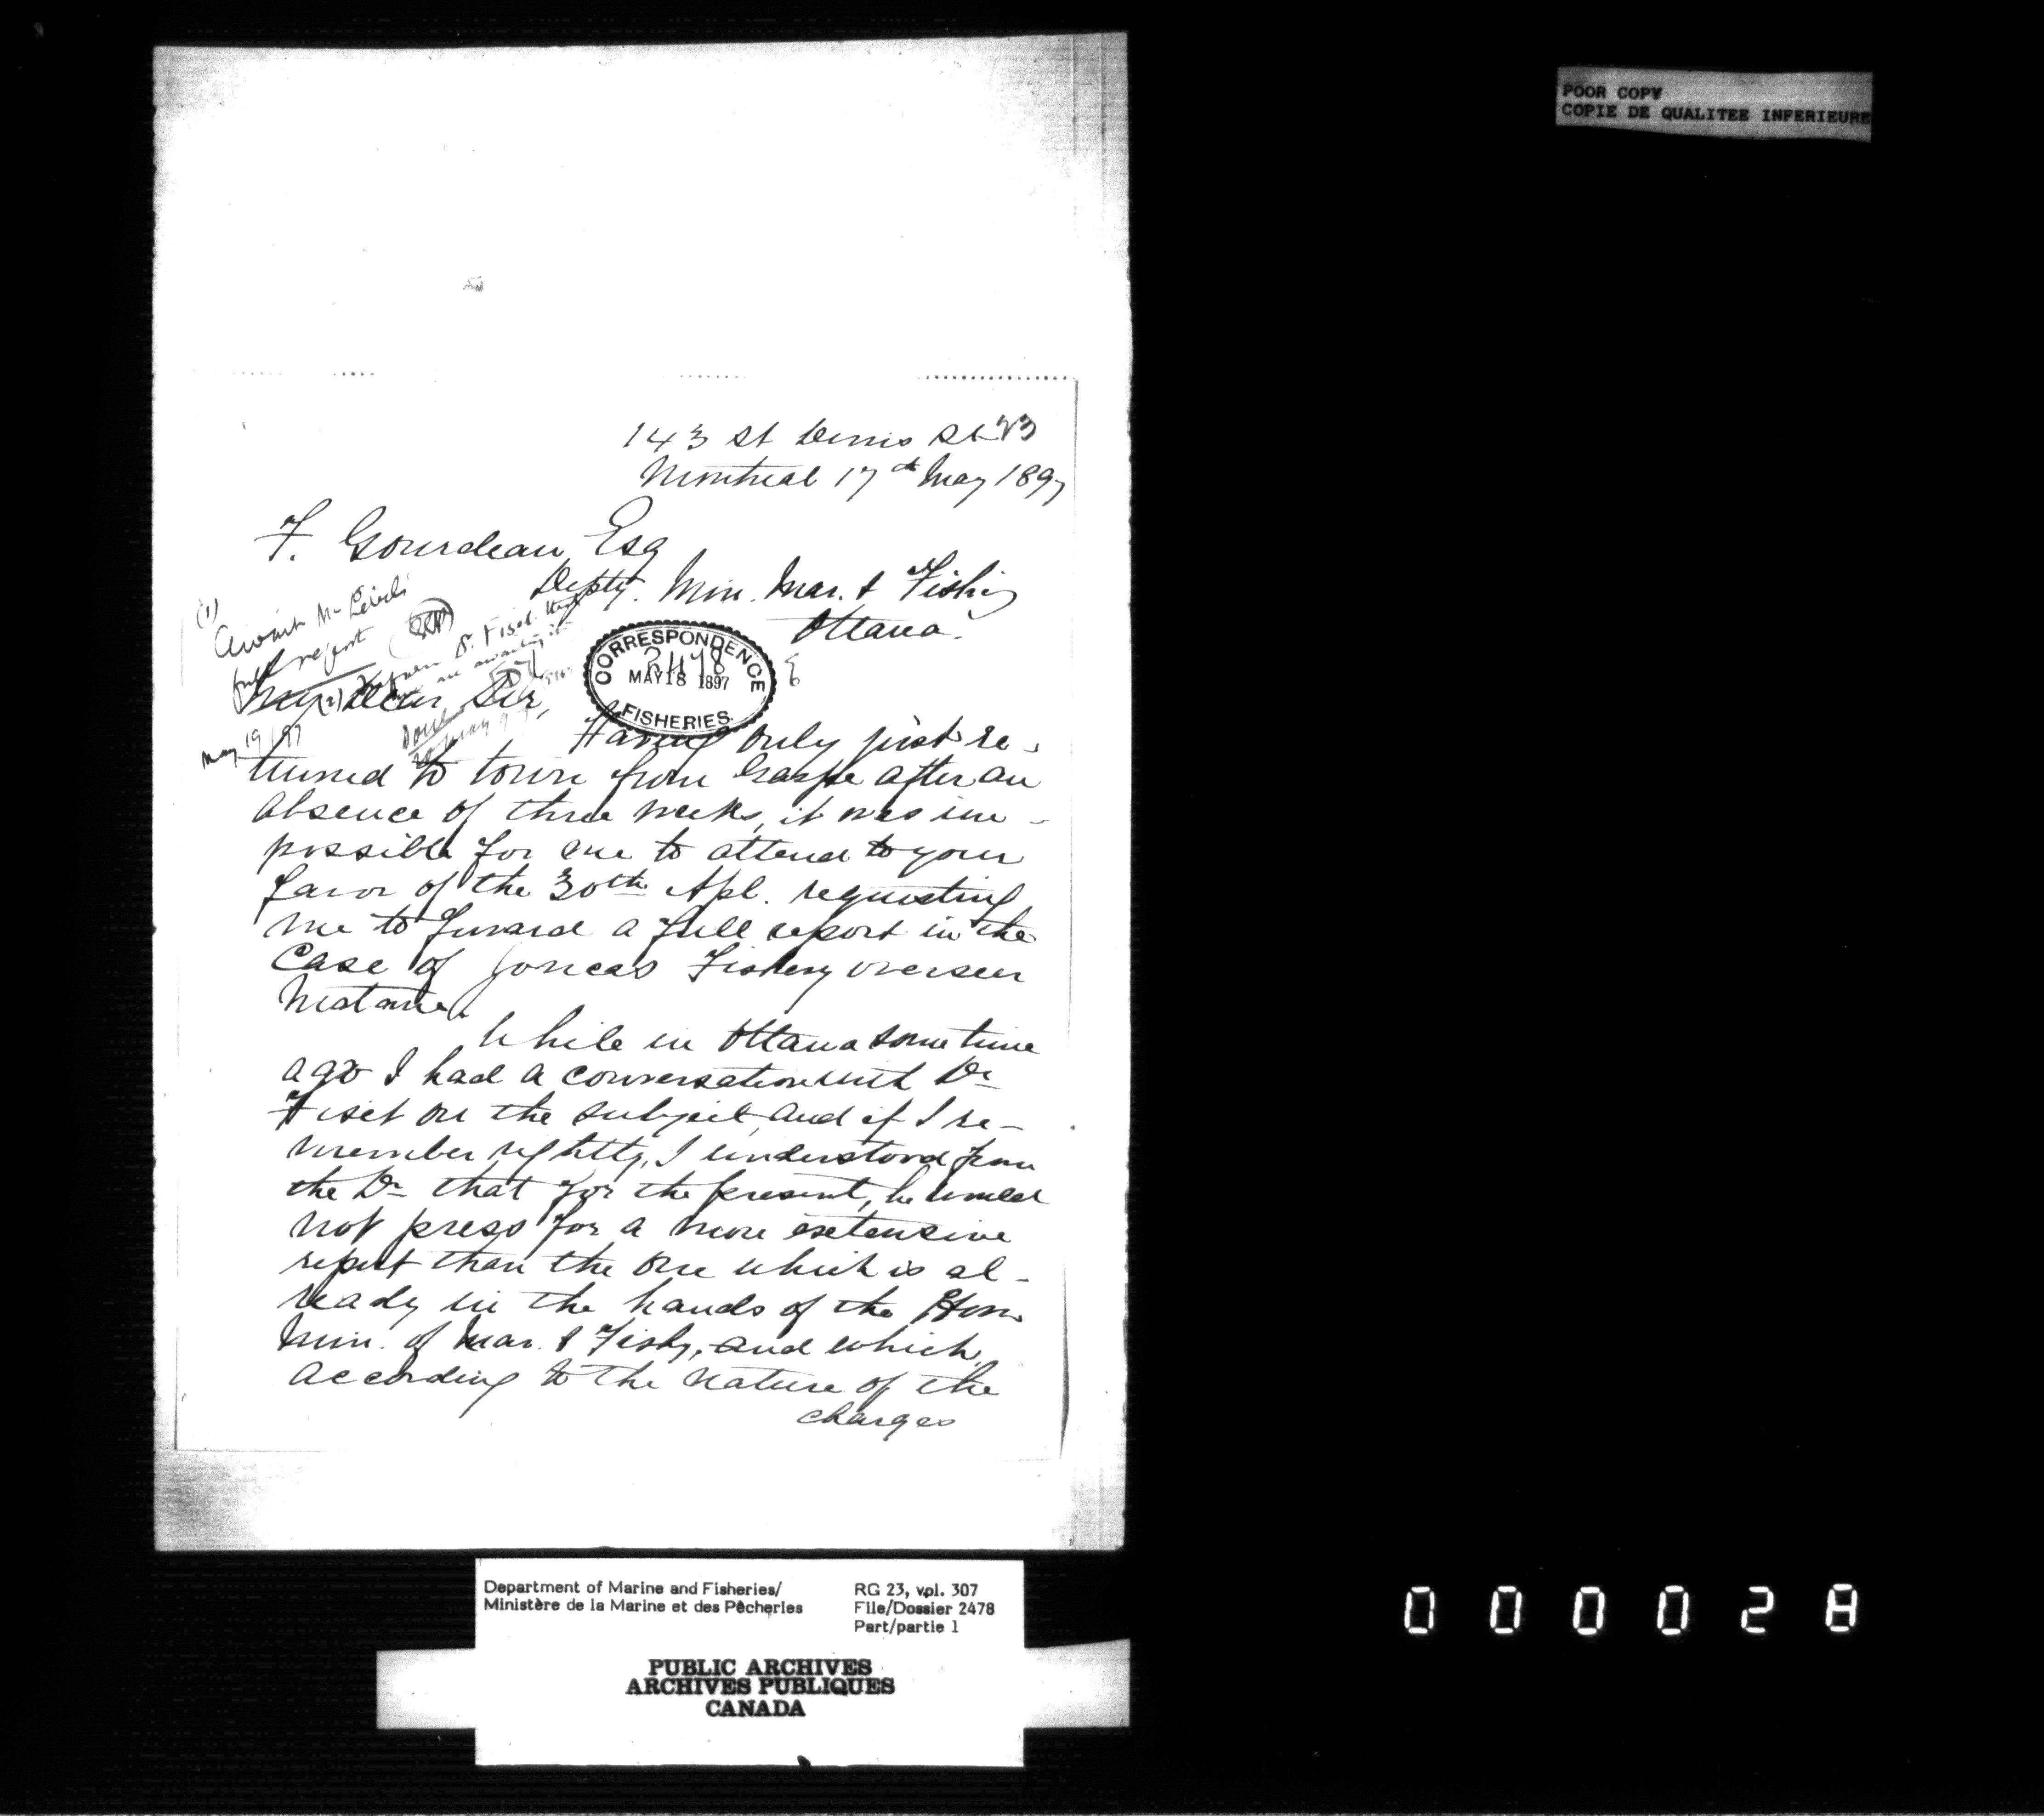 POOR COPY
COPIE DE QUALITEE INFERIEURE
23
143 St Denis St
Montreal 17th May 1897
F. Gourdeau Esq
Depty. Min. Mar. & Fishy
Ottawa.
(1)
Await Mr
full report
(2) Inform Dr. Fiset that
we are awaiting it
Done
20 May 97
May 19/97
CORRESPONDENCE
2478
MAY 18 1897
FISHERIES.
My Dear Sir,
Having only just re-
turned to town from Gaspe after an
absence of three weeks, it was im-
possible for me to attend to your
favor of the 30th Apl. requesting
me to forward a full report in the
Case of Joncas Fishery overseer
Matane.
While in Ottawa some time
ago I had a conversation with Dr
Fiset on the subject, and if I re-
member rightly, I understood from
the Dr that for the present, he would
not press for a more extensive
report than the one which is al-
ready in the hands of the Hon
Min. of Mar. & Fishy, and which,
according to the nature of the
charges
Department of Marine and Fisheries/
Ministère de la Marine et des Pêcheries
RG 23, vol. 307
File/Dossier 2478
Part/partie 1
PUBLIC ARCHIVES
ARCHIVES PUBLIQUES
CANADA
000028